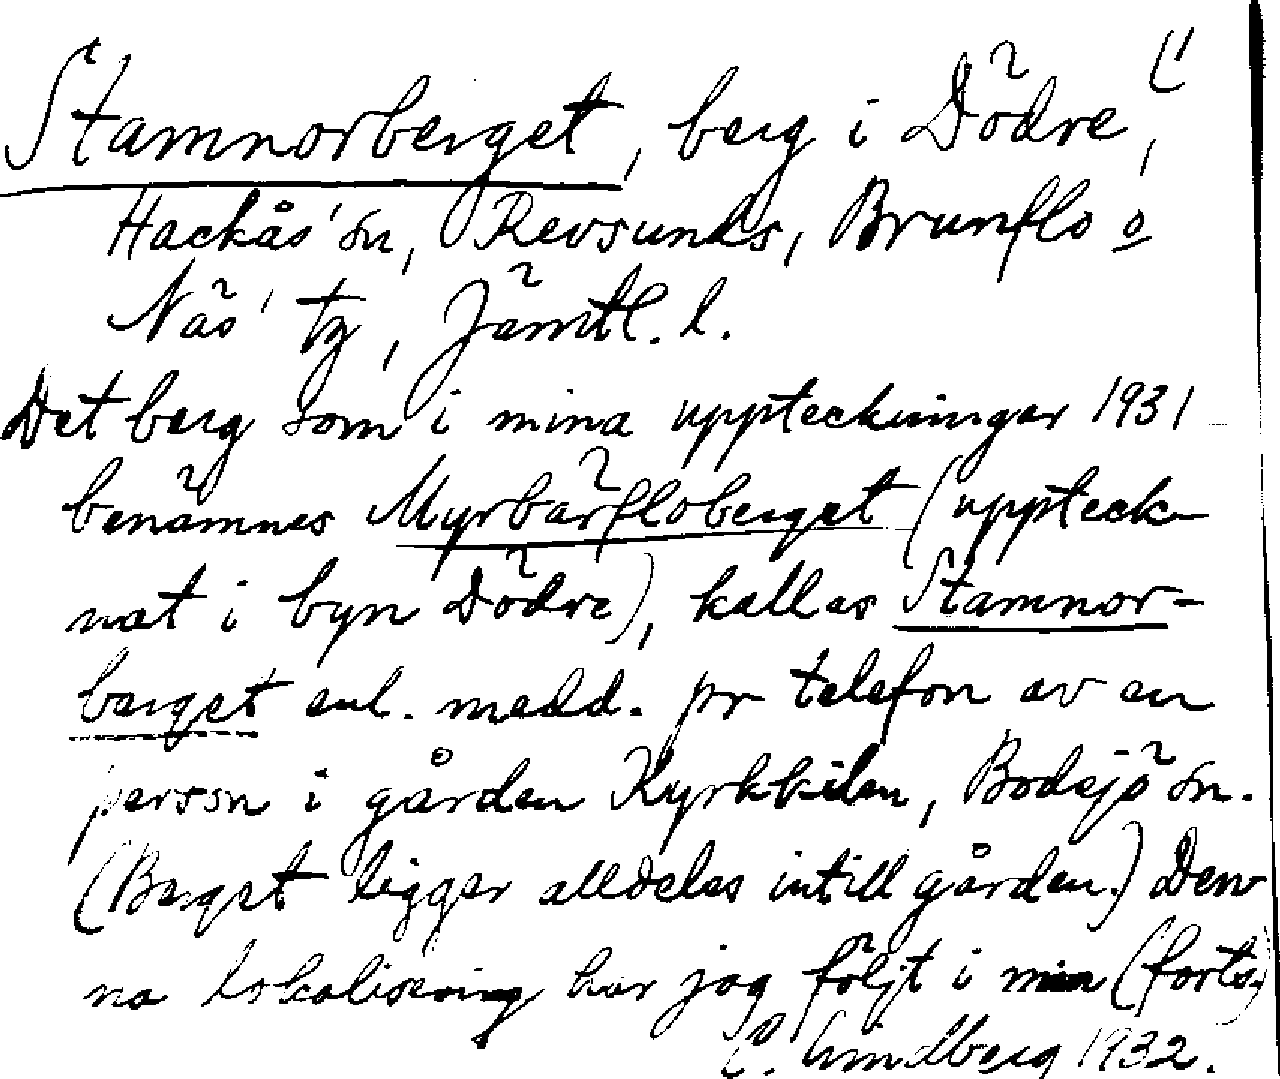 Stamnorberget, berg i Dödre,
Hackås' sn, Revsunds, Brunflo o
Näs' tg, Jämtl. l.
Det berg som i mina uppteckningar 1931
benämnes Myrbärfloberget (uppteck-
nat i byn Dödre), kallas Stamnor-
berget enl. medd. pr telefon av en
person i gården Kyrkkilen, Bodsjö sn.
(Berget ligger alldeles intill gården.) Den-
na lokalisering har jag följt i min (forts.)
C. Lindberg 1932.